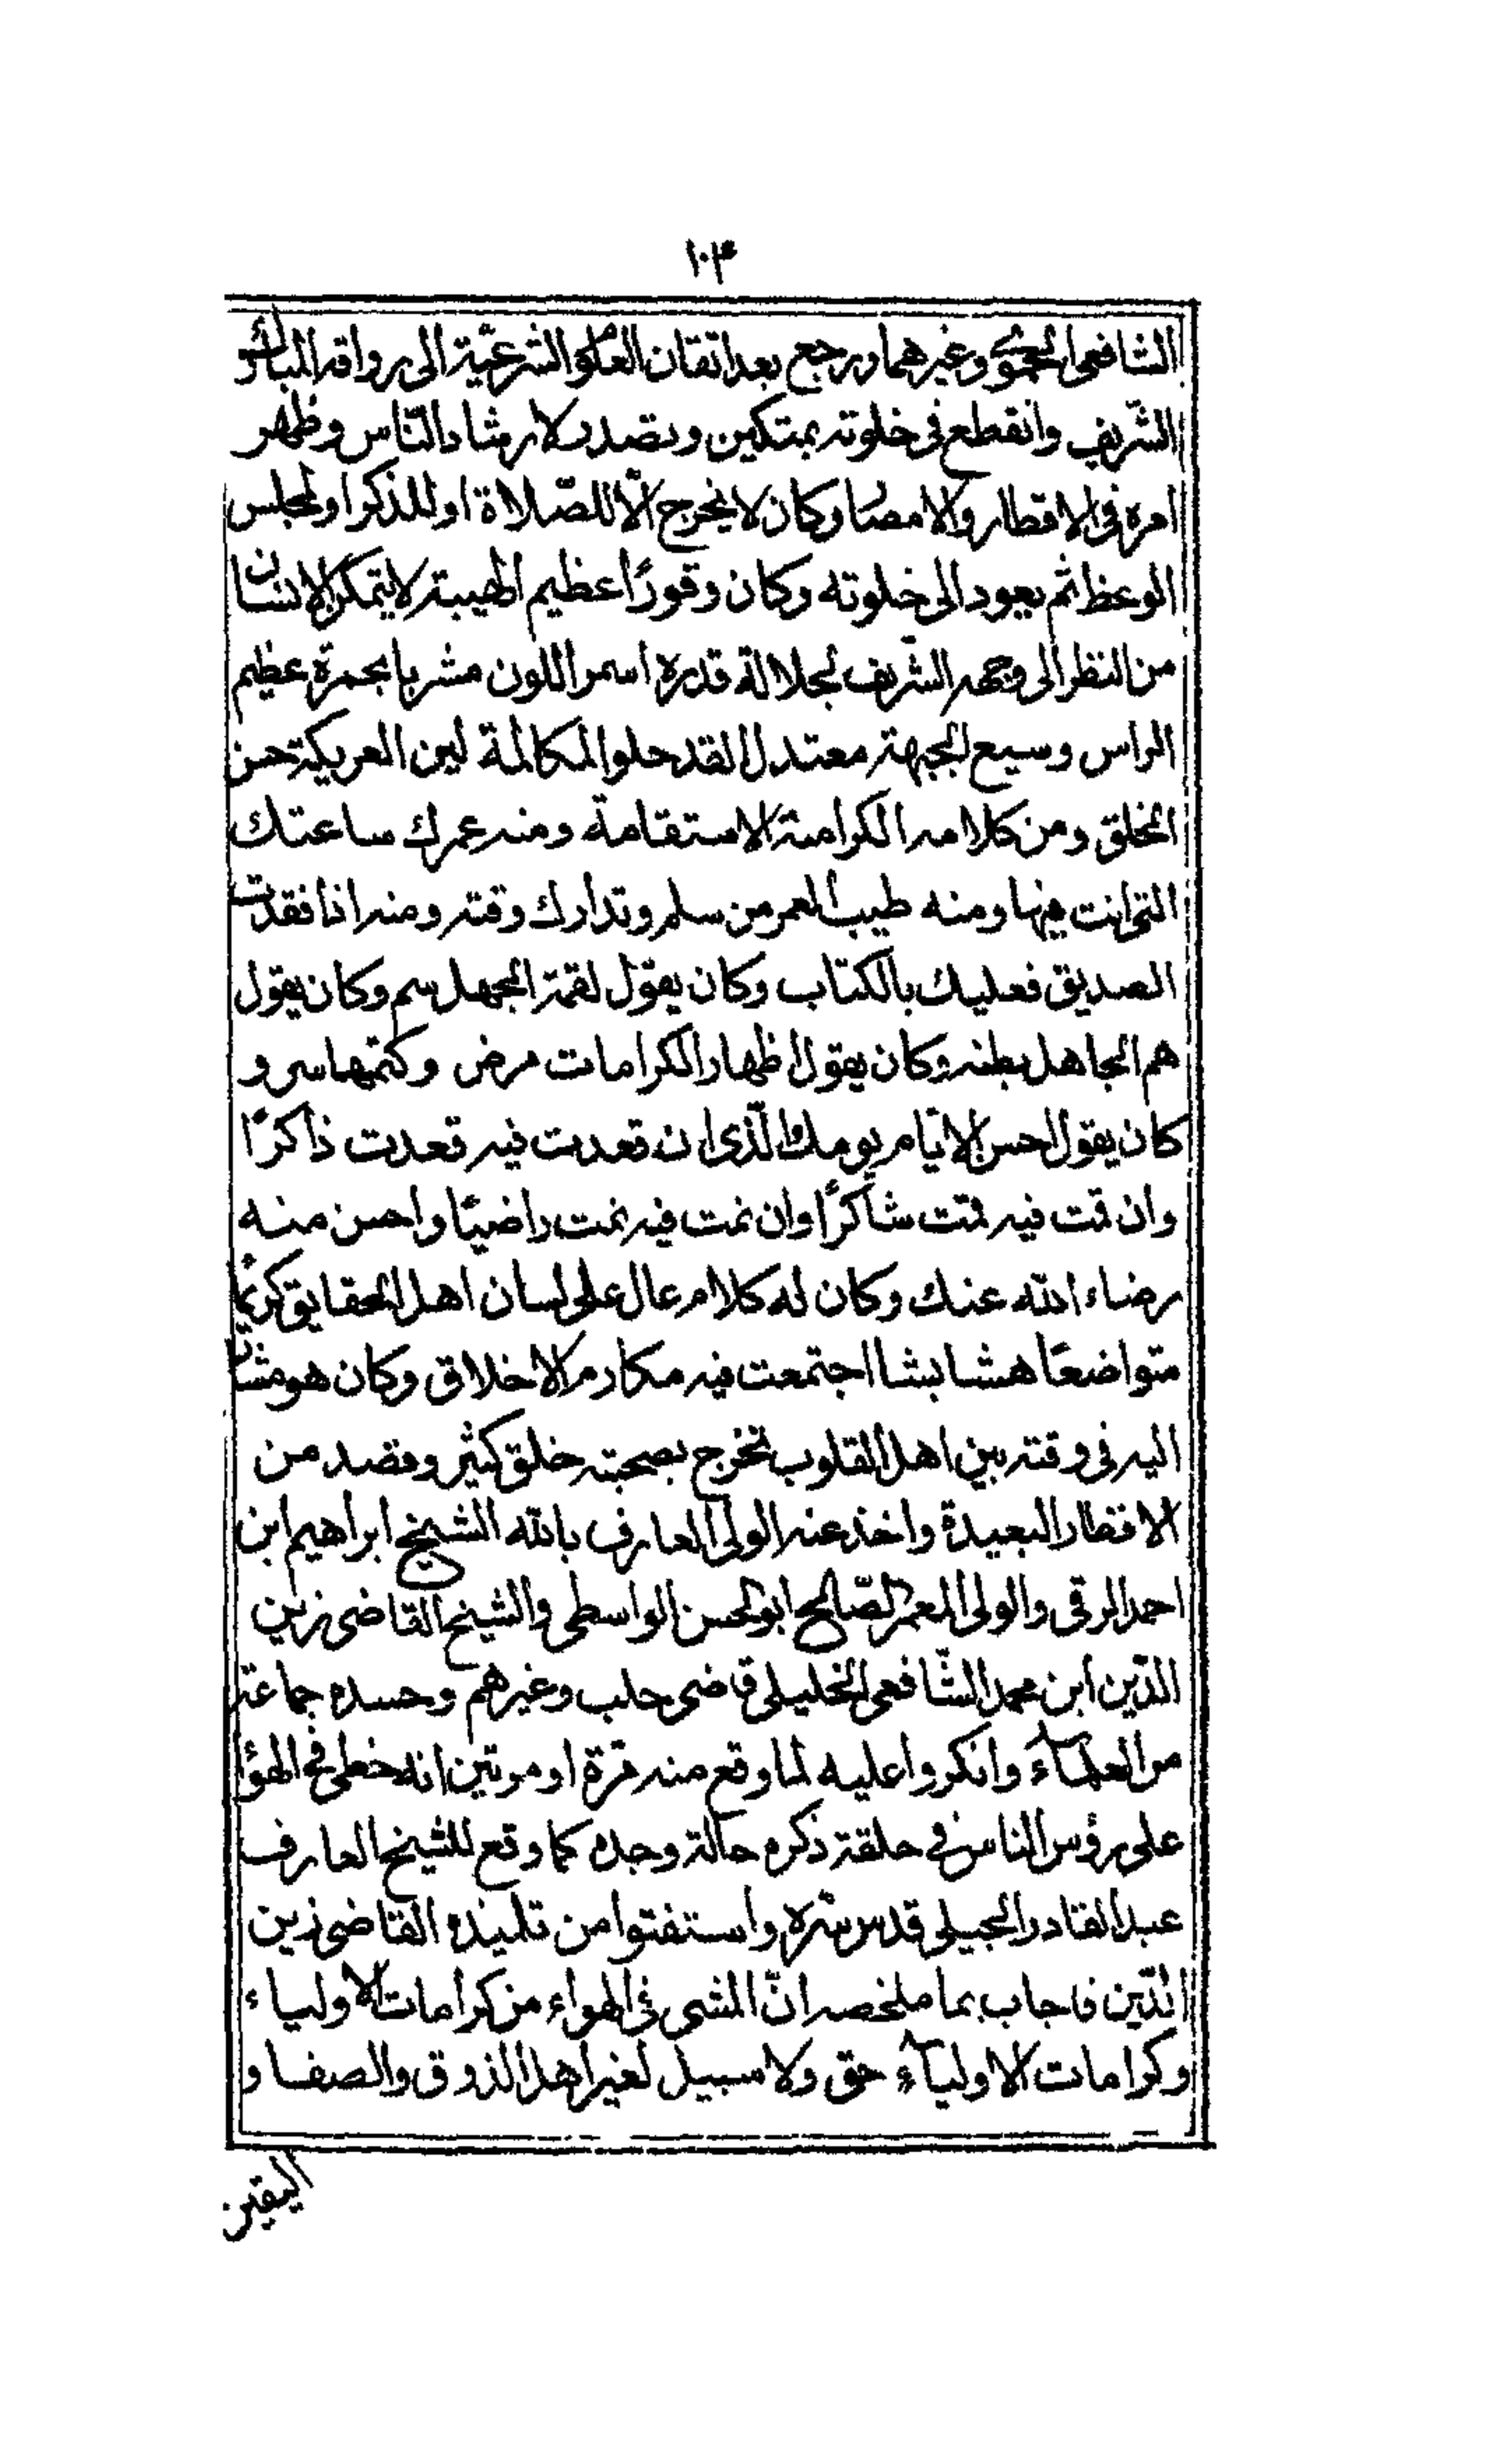 ١٠٣
الشافعى الحموى وغيرهما ورجع بعد اتقان العلوم الشرعيّة الى رواقه المبارك
الشّريف وانقطع فى خلوته بمتكين وتصدر لارشاد النّاس وظهر
امره فى الاقطار والامصار وكان لا يخرج الّا للصّلاة او للذكر او لمجلس
الوعظ ثم يعود الى خلوته وكان وقورًا عظيم الهيبة لا يتمكن الانسان
من النظر الى وجهه الشّريف لجلالة قدره اسمر اللون مشربا بحمرة عظيم
الراس وسيع الجبهة معتدل القد حلو المكالمة لين العريكة حسن
الخلق ومن كلامه الكرامة الاستقامة ومنه عمرك ساعتك
التى انت فيها ومنه طيب العمر من سلم وتدارك وقته ومنه اذا فقدت
الصديق فعليك بالكتاب وكان يقول لقمة الجهل سم وكان يقول
هم الجاهل بطنه وكان يقول اظهار الكرامات مرض وكتمها سر و
كان يقول احسن الايّام يومك الّذى ان قعدت فيه قعدت ذاكرًا
وان قمت فيه قمت شاكرًا وان نمت فيه نمت راضيًا واحسن منه
رضاء الله عنك وكان له كلام عال على لسان اهل الحقايق كريمًا
متواضعًا هشا بشا اجتمعت فيه مكارم الاخلاق وكان هو مشار
اليه فى وقته بين اهل القلوب تخرج بصحبته خلق كثير وقصد من
الاقطار البعيدة واخذ عنه الولى العارف بالله الشيخ ابراهيم ابن
احمد الرقى والولى المعمر الصّالح ابو الحسن الواسطى والشيخ القاضى زين
الدّين ابن محمد الشّافعى الخليلى قاضى حلب وغيرهم وحسده جماعة
من العلمآء وانكروا عليه لما وقع منه مرّة او مرتين انه خطى فى الهوا
على رؤس الناس فى حلقة ذكره حالة وجده كما وقع للشيخ العارف
عبد القادر الجيلى قدس سّره واستفتوا من تلميذه القاضى زين
الدّين فاجاب بما ملخصه انّ المشى فى الهواء من كرامات الاولياء
وكرامات الاوليآء حق ولا سبيل لغير اهل الذوق والصفا و
اليقين